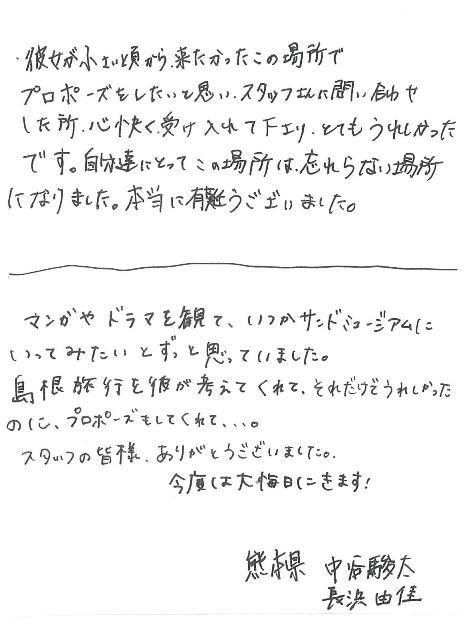 ・彼女が小さい頃から、来たかったこの場所で
プロポーズをしたいと思い、スタッフさんに問い合わせ
した所、心快く受け入れて下さり、とてもうれしかった
です。自分達にとってこの場所は、忘れらない場所
になりました。本当に有難うございました。
マンガやドラマを観て、いつかサンドミュージアムに
いってみたいとずっと思っていました。
島根旅行を彼が考えてくれて、それだけでうれしかった
のに、プロポーズもしてくれて、、、。
スタッフの皆様、ありがとうございました。
今度は大晦日にきます!
熊本県 中谷駿太
長浜由佳